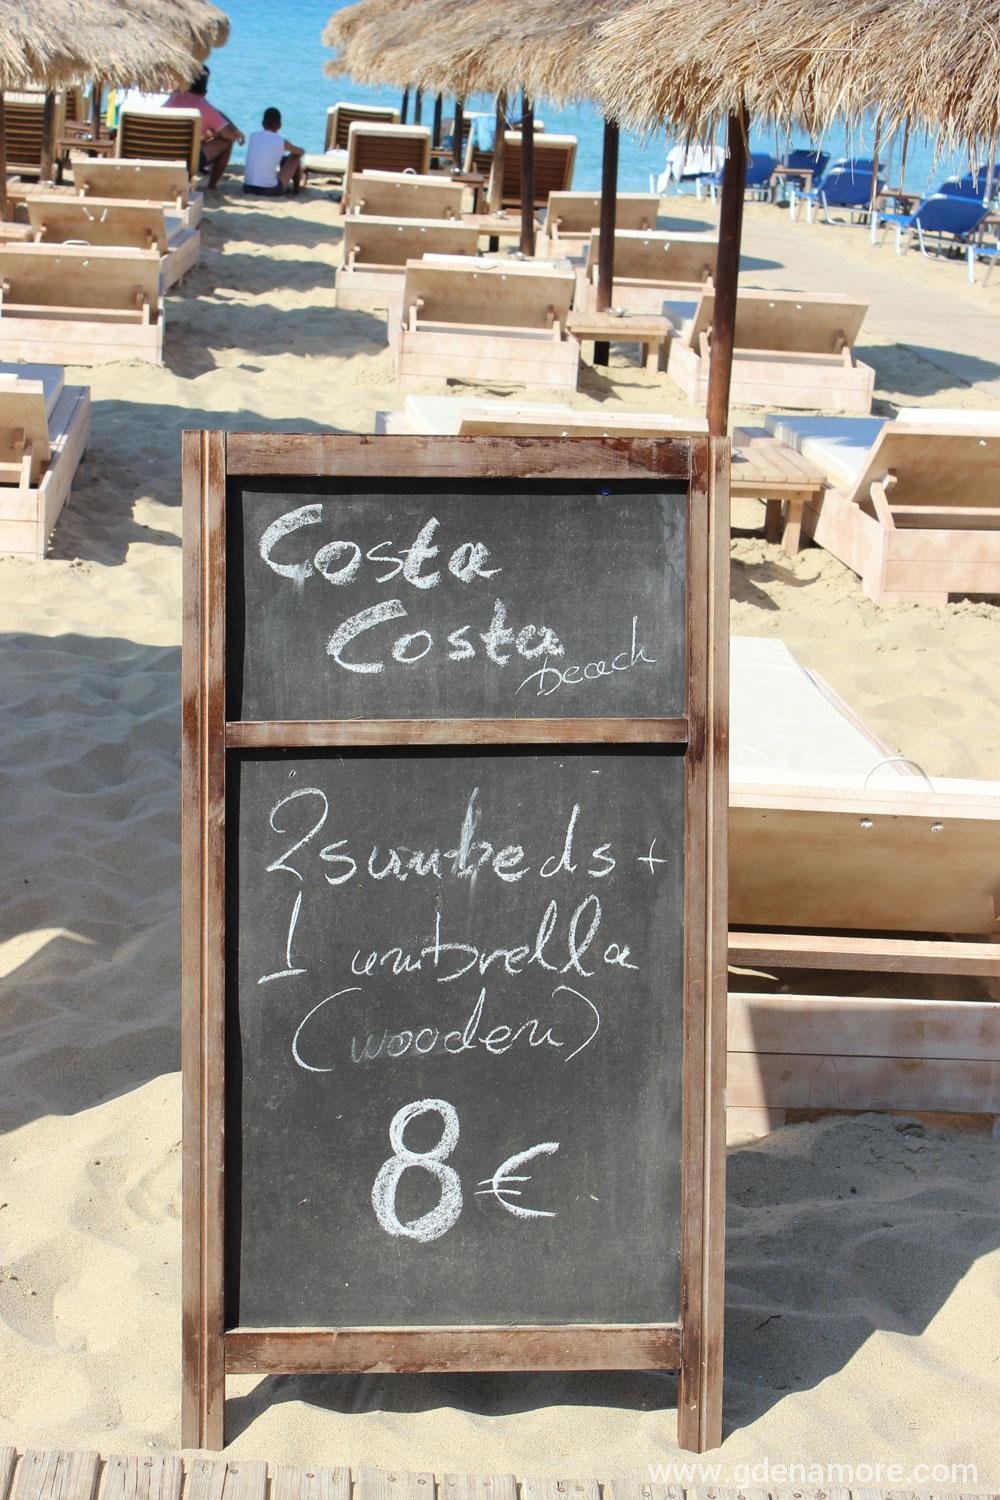 Costa
Costa
beach
2 sunbeds +
1 umbrella
(wooden)
8 €
www.gdenamore.com